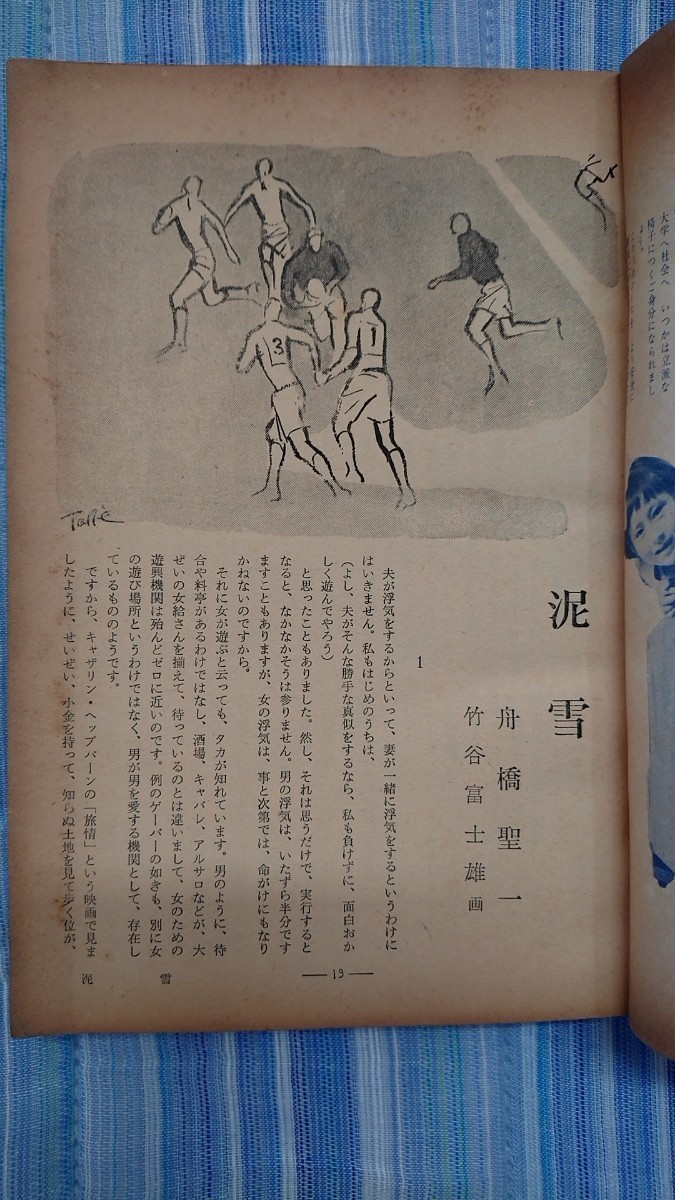 大学へ社会へ　いつかは立派な
椅子につくご身分になられまし
泥雪
舟橋聖一
竹谷富士雄画
1
夫が浮気をするからといって、妻が一緒に浮気をするというわけに
はいきません。私もはじめのうちは、
（よし、夫がそんな勝手な真似をするなら、私も負けずに、面白おか
しく遊んでやろう）
と思ったこともありました。然し、それは思うだけで、実行すると
なると、なかなかそうは参りません。男の浮気は、いたずら半分です
ますこともありますが、女の浮気は、事と次第では、命がけにもなり
かねないのですから。
それに女が遊ぶと云っても、タカが知れています。男のように、待
合や料亭があるわけではなし、酒場、キャバレ、アルサロなどが、大
ぜいの女給さんを揃えて、待っているのとは違いまして、女のための
遊興機関は殆んどゼロに近いのです。例のゲーバーの如きも、別に女
の遊び場所というわけではなく、男が男を愛する機関として、存在し
ているもののようです。
ですから、キャザリン・ヘップバーンの「旅情」という映画で見ま
したように、せいぜい、小金を持って、知らぬ土地を見て歩く位が、
3
1
— 13 —
泥雪